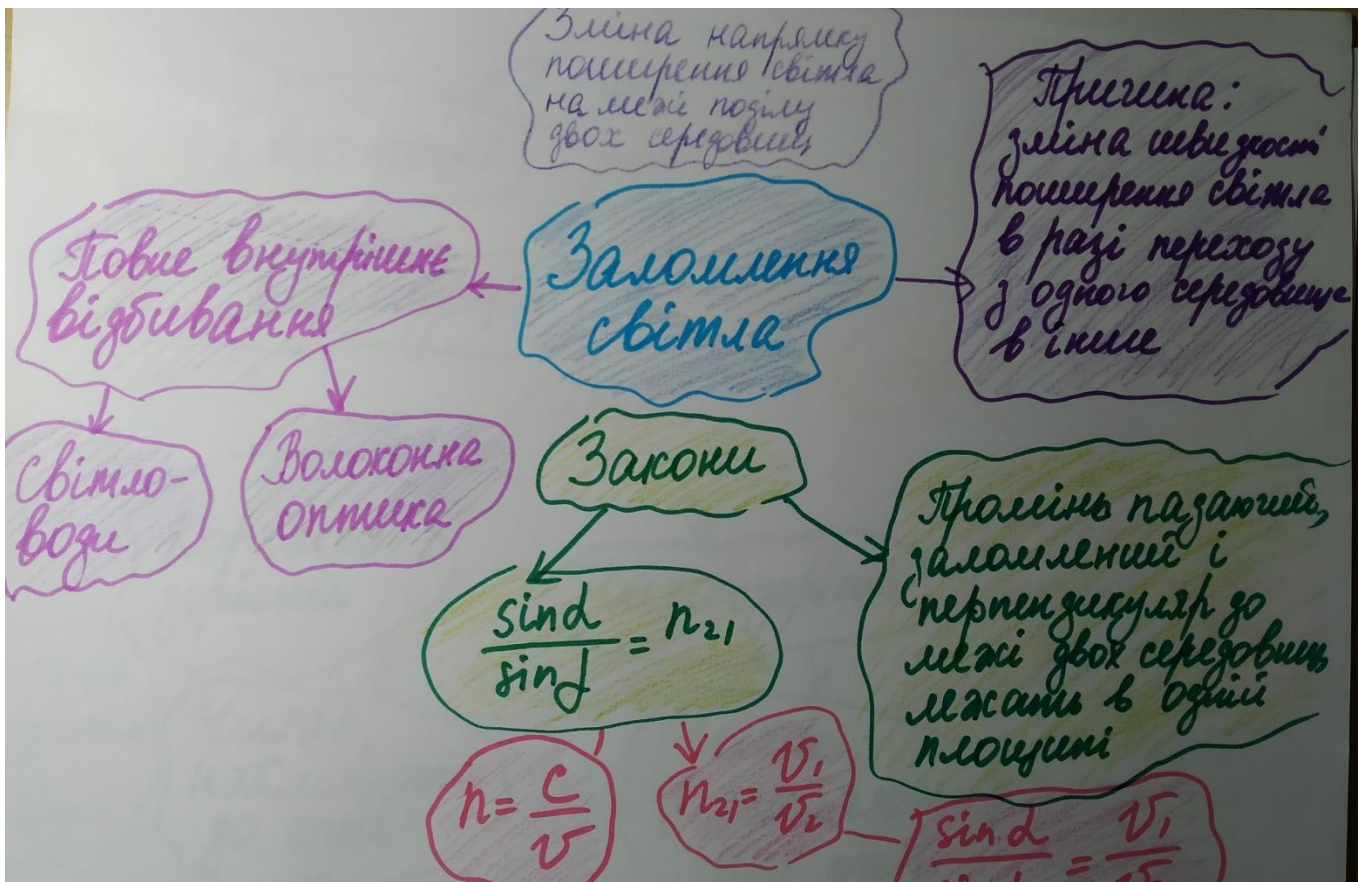 Зміна напрямку
поширення світла
на межі поділу
двох середовищ
Причина:
зміна швидкості
поширення світла
в разі переходу
з одного середовища
в інше
Повне внутрішнє
відбивання
Заломлення
світла
Світло-
води
Волоконна
оптика
Закони
Промінь падаючий,
заломлений і
перпендикуляр до
межі двох середовищ
лежать в одній
площині
sinα
/ sinγ = n₂₁
n = c / v
n₂₁ = v₁ / v₂
sin α
= v₁